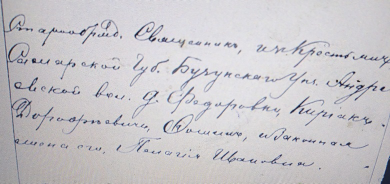 Старообряд. Священникъ, изъ Крестьянъ
Самарской Губ. Бузулукскаго Уѣз. Андре
евской вол. д. Федоровки,
Дорофеевичъ Фоминъ, и законная
жена его, Пелагія Ивановна.